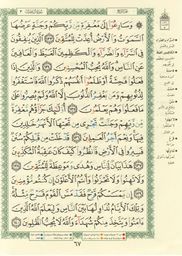 وَسَارِعُوٓا۟ إِلَىٰ مَغْفِرَةٍ مِّن رَّبِّكُمْ وَجَنَّةٍ عَرْضُهَا
ٱلسَّمَٰوَٰتُ وَٱلْأَرْضُ أُعِدَّتْ لِلْمُتَّقِينَ ١٣٣ ٱلَّذِينَ يُنفِقُونَ
فِى ٱلسَّرَّآءِ وَٱلضَّرَّآءِ وَٱلْكَٰظِمِينَ ٱلْغَيْظَ وَٱلْعَافِينَ
عَنِ ٱلنَّاسِ وَٱللَّهُ يُحِبُّ ٱلْمُحْسِنِينَ ١٣٤ وَٱلَّذِينَ إِذَا فَعَلُوا۟
فَٰحِشَةً أَوْ ظَلَمُوٓا۟ أَنفُسَهُمْ ذَكَرُوا۟ ٱللَّهَ فَٱسْتَغْفَرُوا۟
لِذُنُوبِهِمْ وَمَن يَغْفِرُ ٱلذُّنُوبَ إِلَّا ٱللَّهُ وَلَمْ يُصِرُّوا۟ عَلَىٰ
مَا فَعَلُوا۟ وَهُمْ يَعْلَمُونَ ١٣٥ أُو۟لَٰٓئِكَ جَزَآؤُهُم مَّغْفِرَةٌ
مِّن رَّبِّهِمْ وَجَنَّٰتٌ تَجْرِى مِن تَحْتِهَا ٱلْأَنْهَٰرُ خَٰلِدِينَ
فِيهَا وَنِعْمَ أَجْرُ ٱلْعَٰمِلِينَ ١٣٦ قَدْ خَلَتْ مِن قَبْلِكُمْ سُنَنٌ
فَسِيرُوا۟ فِى ٱلْأَرْضِ فَٱنظُرُوا۟ كَيْفَ كَانَ عَٰقِبَةُ ٱلْمُكَذِّبِينَ
١٣٧ هَٰذَا بَيَانٌ لِّلنَّاسِ وَهُدًى وَمَوْعِظَةٌ لِّلْمُتَّقِينَ ١٣٨
وَلَا تَهِنُوا۟ وَلَا تَحْزَنُوا۟ وَأَنتُمُ ٱلْأَعْلَوْنَ إِن كُنتُم مُّؤْمِنِينَ
١٣٩ إِن يَمْسَسْكُمْ قَرْحٌ فَقَدْ مَسَّ ٱلْقَوْمَ قَرْحٌ مِّثْلُهُۥ
وَتِلْكَ ٱلْأَيَّامُ نُدَاوِلُهَا بَيْنَ ٱلنَّاسِ وَلِيَعْلَمَ ٱللَّهُ ٱلَّذِينَ
ءَامَنُوا۟ وَيَتَّخِذَ مِنكُمْ شُهَدَآءَ وَٱللَّهُ لَا يُحِبُّ ٱلظَّٰلِمِينَ ١٤٠
٦٧